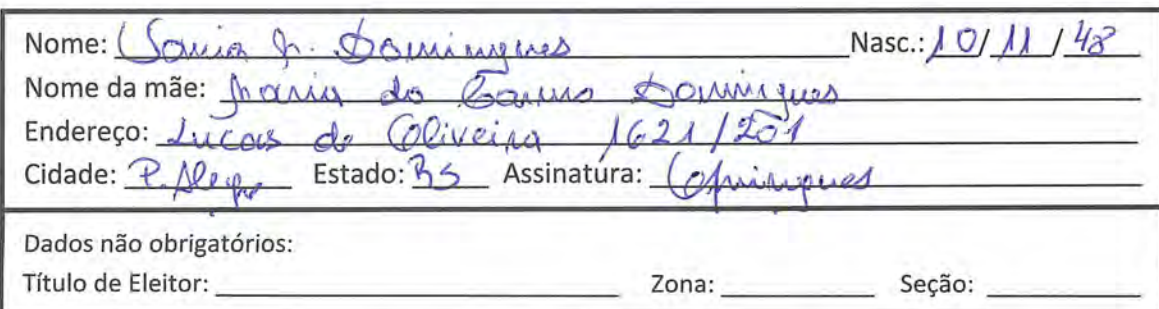 Nome: Sonia M. Domingues Nasc.: 10/11/48
Nome da mãe: Maria do Carmo Domingues
Endereço: Lucas de Oliveira 1621/201
Cidade: P. Alegre Estado: RS Assinatura:
Dados não obrigatórios:
Título de Eleitor: Zona: Seção: